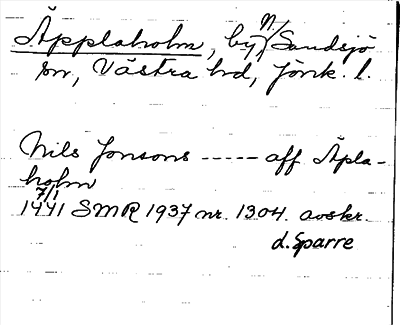 Äpplaholm, by, N. Sandsjö
sn, Västra hd, Jönk. l.
Nils Jonsons ----- aff Äpla-
holm
7/1
1441 SMR 1937 nr. 1304. avskr.
d. Sparre